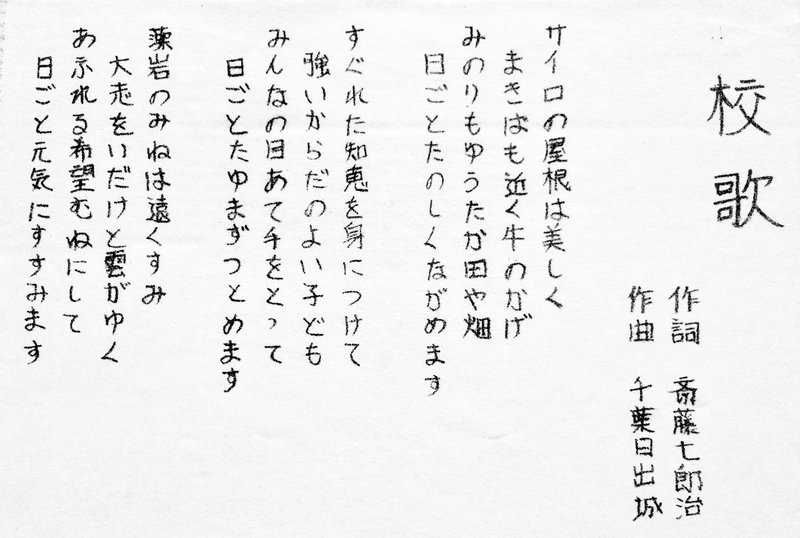 校歌
作詞 斎藤七郎治
作曲 千葉日出城
サイロの屋根は美しく
まきばも近く牛のかげ
みのりもゆうたか田や畑
日ごとたのしくながめます
すぐれた知恵を身につけて
強いからだのよい子ども
みんなの目あて手をとって
日ごとたゆまずつとめます
藻岩のみねは遠くすみ
大志をいだけと雲がゆく
あふれる希望むねにして
日ごと元気にすすみます